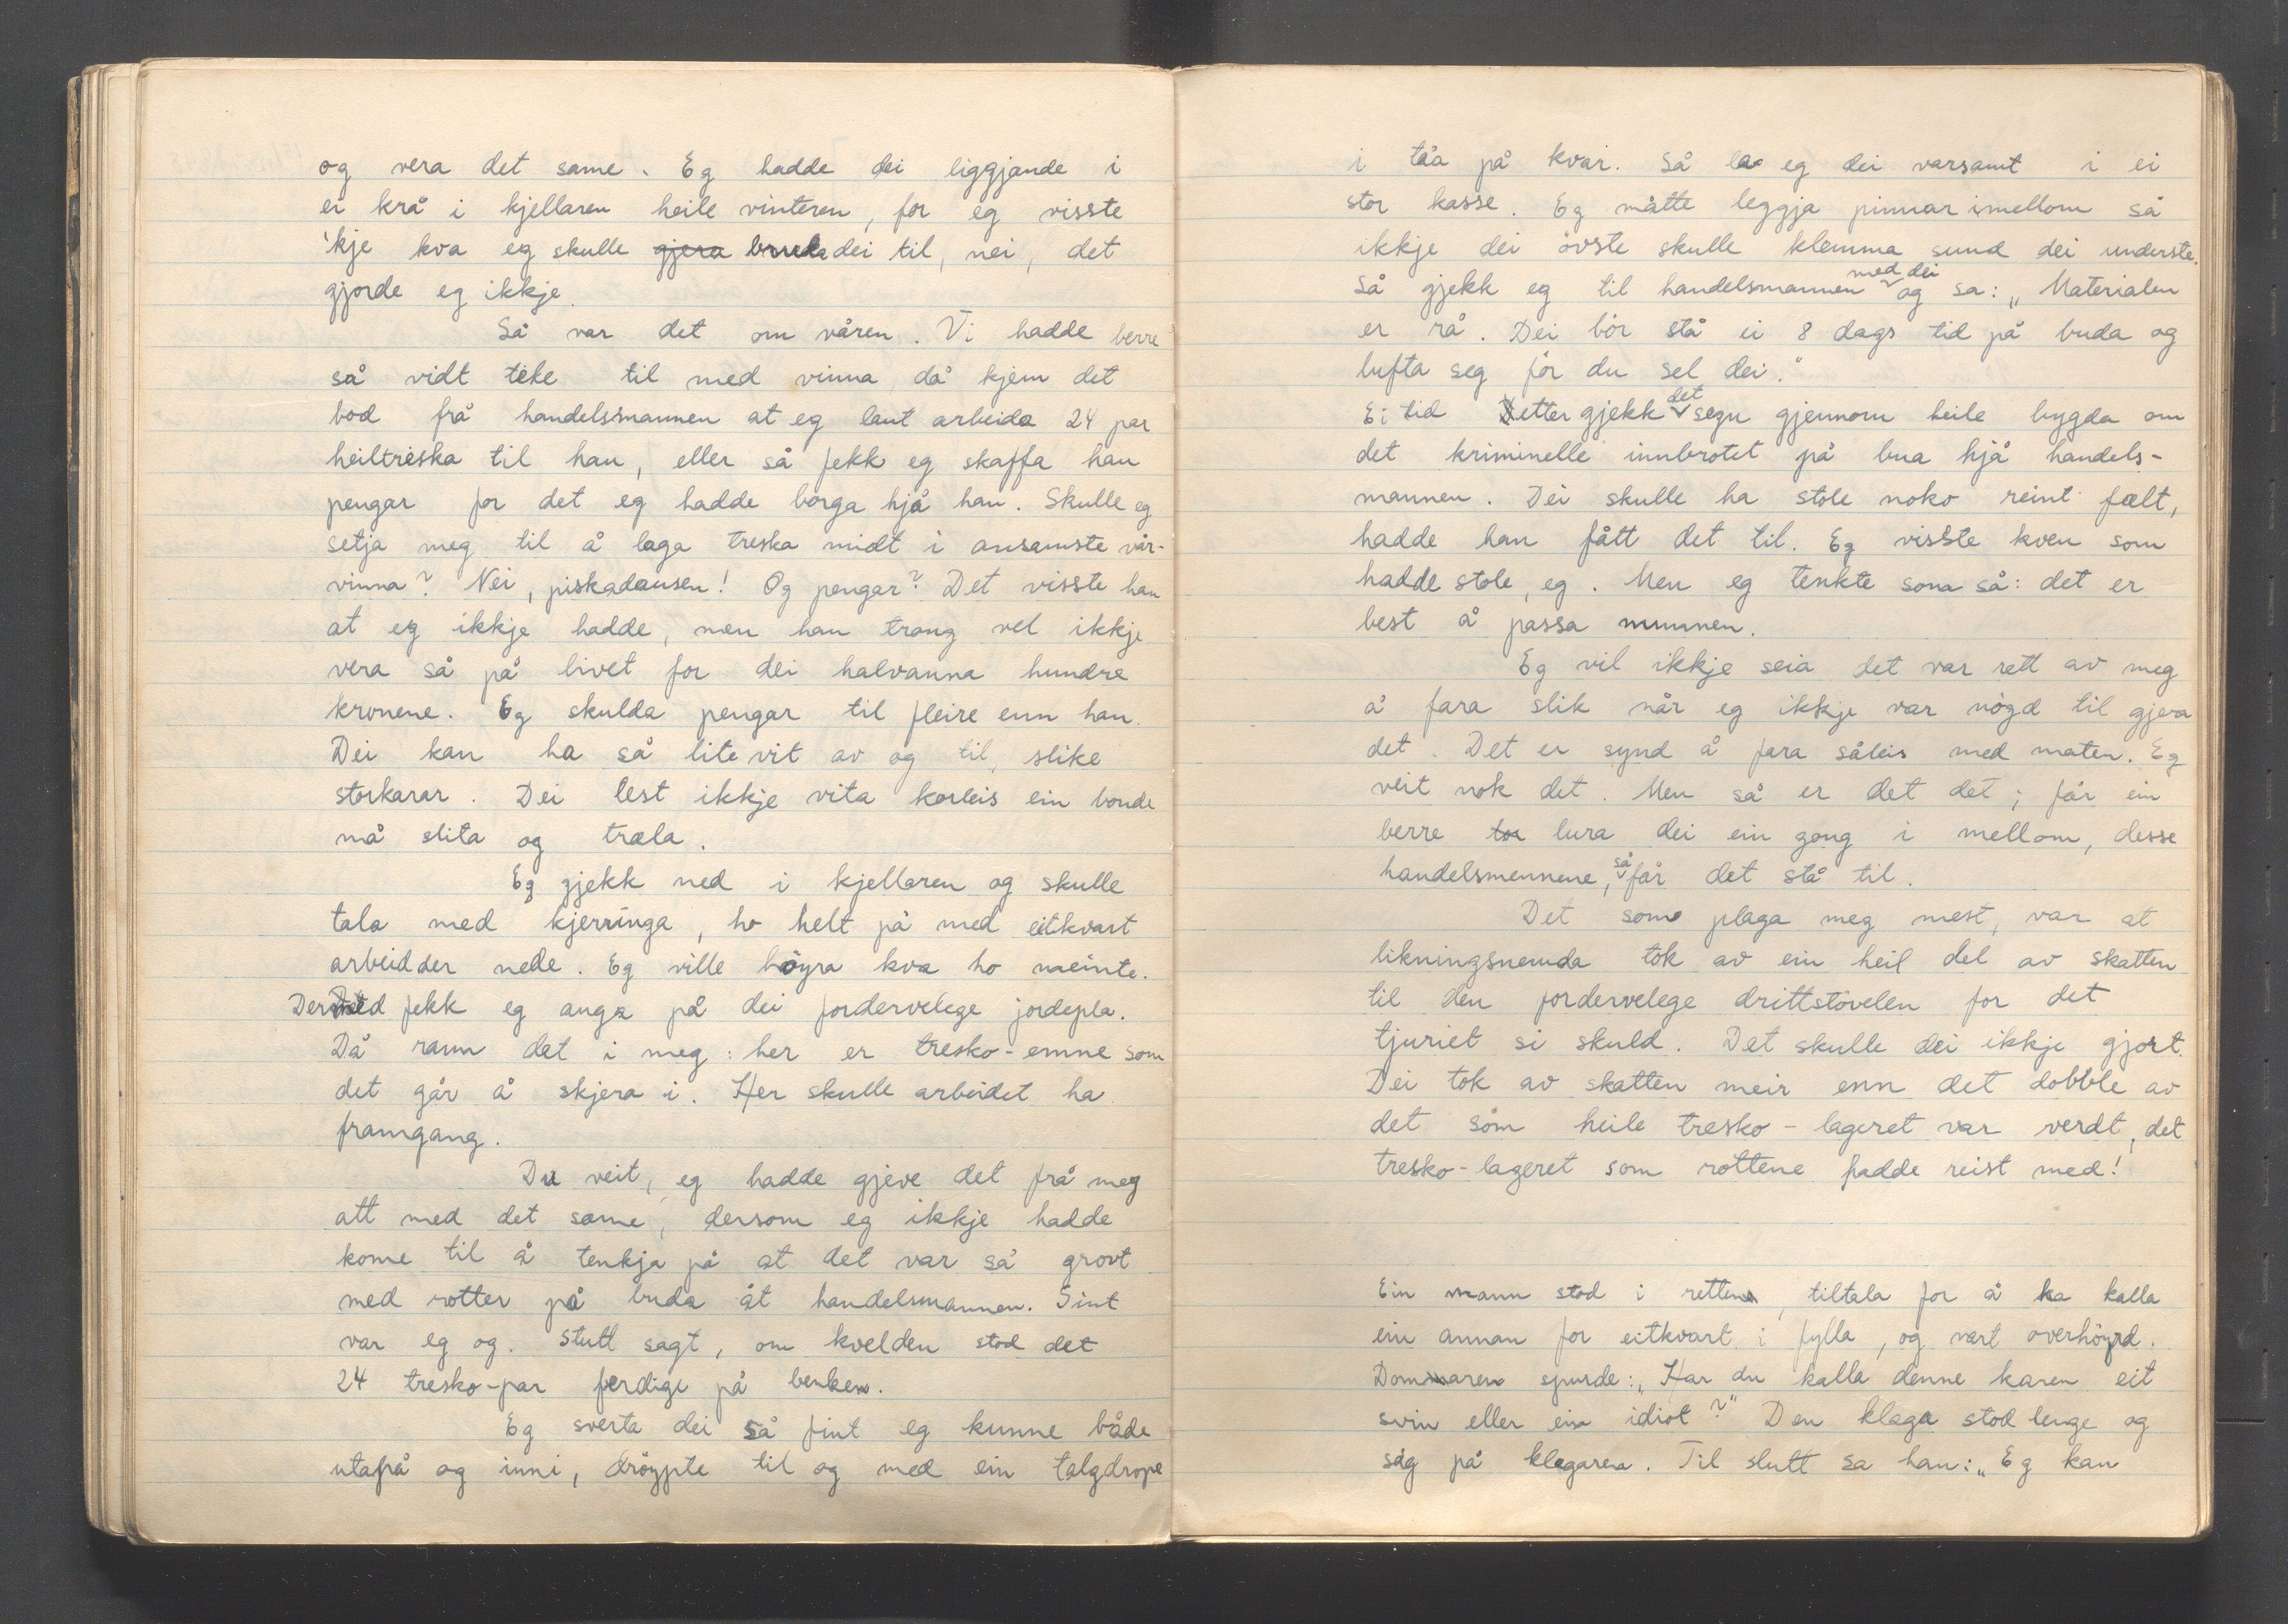 og vera det same. Eg hadde dei liggjande i
ei krå i kjellaren heile vinteren, for eg visste
'kje kva eg skulle gjera bruka dei til, nei, det
gjorde eg ikkje.
Så var det om våren. Vi hadde berre
så vidt teke til med vinna då kjem det
bod frå handelsmannen at eg laut arbeida 24 par
heiltreska til han, eller så fekk eg skaffa han
pengar for det eg hadde borga hjå han. Skulle eg
setja meg til å laga treska midt i ansamste vår-
vinna? Nei, piskadausen! Og pengar? Det visste han
at eg ikkje hadde, men han trong vel ikkje
vera så på livet for dei halvanna hundre
kronene. Eg skulda pengar til fleire enn han.
Dei kan ha så lite vit av og til, slike
storkarar. Dei lest ikkje vita korleis ein bonde
må slita og træla.
Eg gjekk ned i kjellaren og skulle
tala med kjerringa, ho helt på med eitkvart
arbeid der nede. Eg ville höyra kva ho meinte.
Dermed fekk eg auga på dei fordervelege jordepla.
Då rann det i meg: her er tresko-emne som
det går å skjera i. Her skulle arbeidet ha
framgang.
Du veit, eg hadde gjeve det frå meg
att med det same, dersom eg ikkje hadde
kome til å tenkja på at det var så grovt
med rotter på buda åt handelsmannen. Sint
var eg og. Stutt sagt, om kvelden stod det
24 tresko-par ferdige på benken.
Eg sverta dei så fint eg kunne både
utapå og inni, dröypte til og med ein talgdrope
i tåa på kvar. Så la eg dei varsamt i ei
stor kasse. Eg måtte leggja pinnar imellom så
ikkje dei övste skulle klemma sund dei underste.
Så gjekk eg til handelsmannen med dei og sa: „Materialen
er rå. Dei bör stå ei 8 dags tid på buda og
lufta seg för du sel dei."
Ei tid etter gjekk det segn gjennom heile bygda om
det kriminelle innbrotet på bua hjå handels-
mannen. Dei skulle ha stole noko reint fælt,
hadde han fått det til. Eg visste kven som
hadde stole, eg. Men eg tenkte som så: det er
best å passa munnen.
Eg vil ikkje seia det var rett av meg
å fara slik når eg ikkje var nögd til gjera
det. Det er synd å fara såleis med maten. Eg
veit nok det. Men så er det det; får ein
berre lura dei ein gong i mellom, desse
handelsmennene, så får det stå til.
Det som plaga meg mest, var at
likningsnemnda tok av ein heil del av skatten
til den fordervelege drittstövelen for det
tjuriet si skuld. Det skulle dei ikkje gjort.
Dei tok av skatten meir enn det dobble av
det som heile tresko-lageret var verdt, det
tresko-lageret som rottene hadde reist med!
Ein mann stod i retten, tiltala for å ha kalla
ein annan for eitkvart i fylla, og vart overhöyrd.
Dommaren spurde: „Har du kalla denne karen eit
svin eller ein idiot?" Den klaga stod lenge og
såg på klagaren. Til slutt sa han: „Eg kan